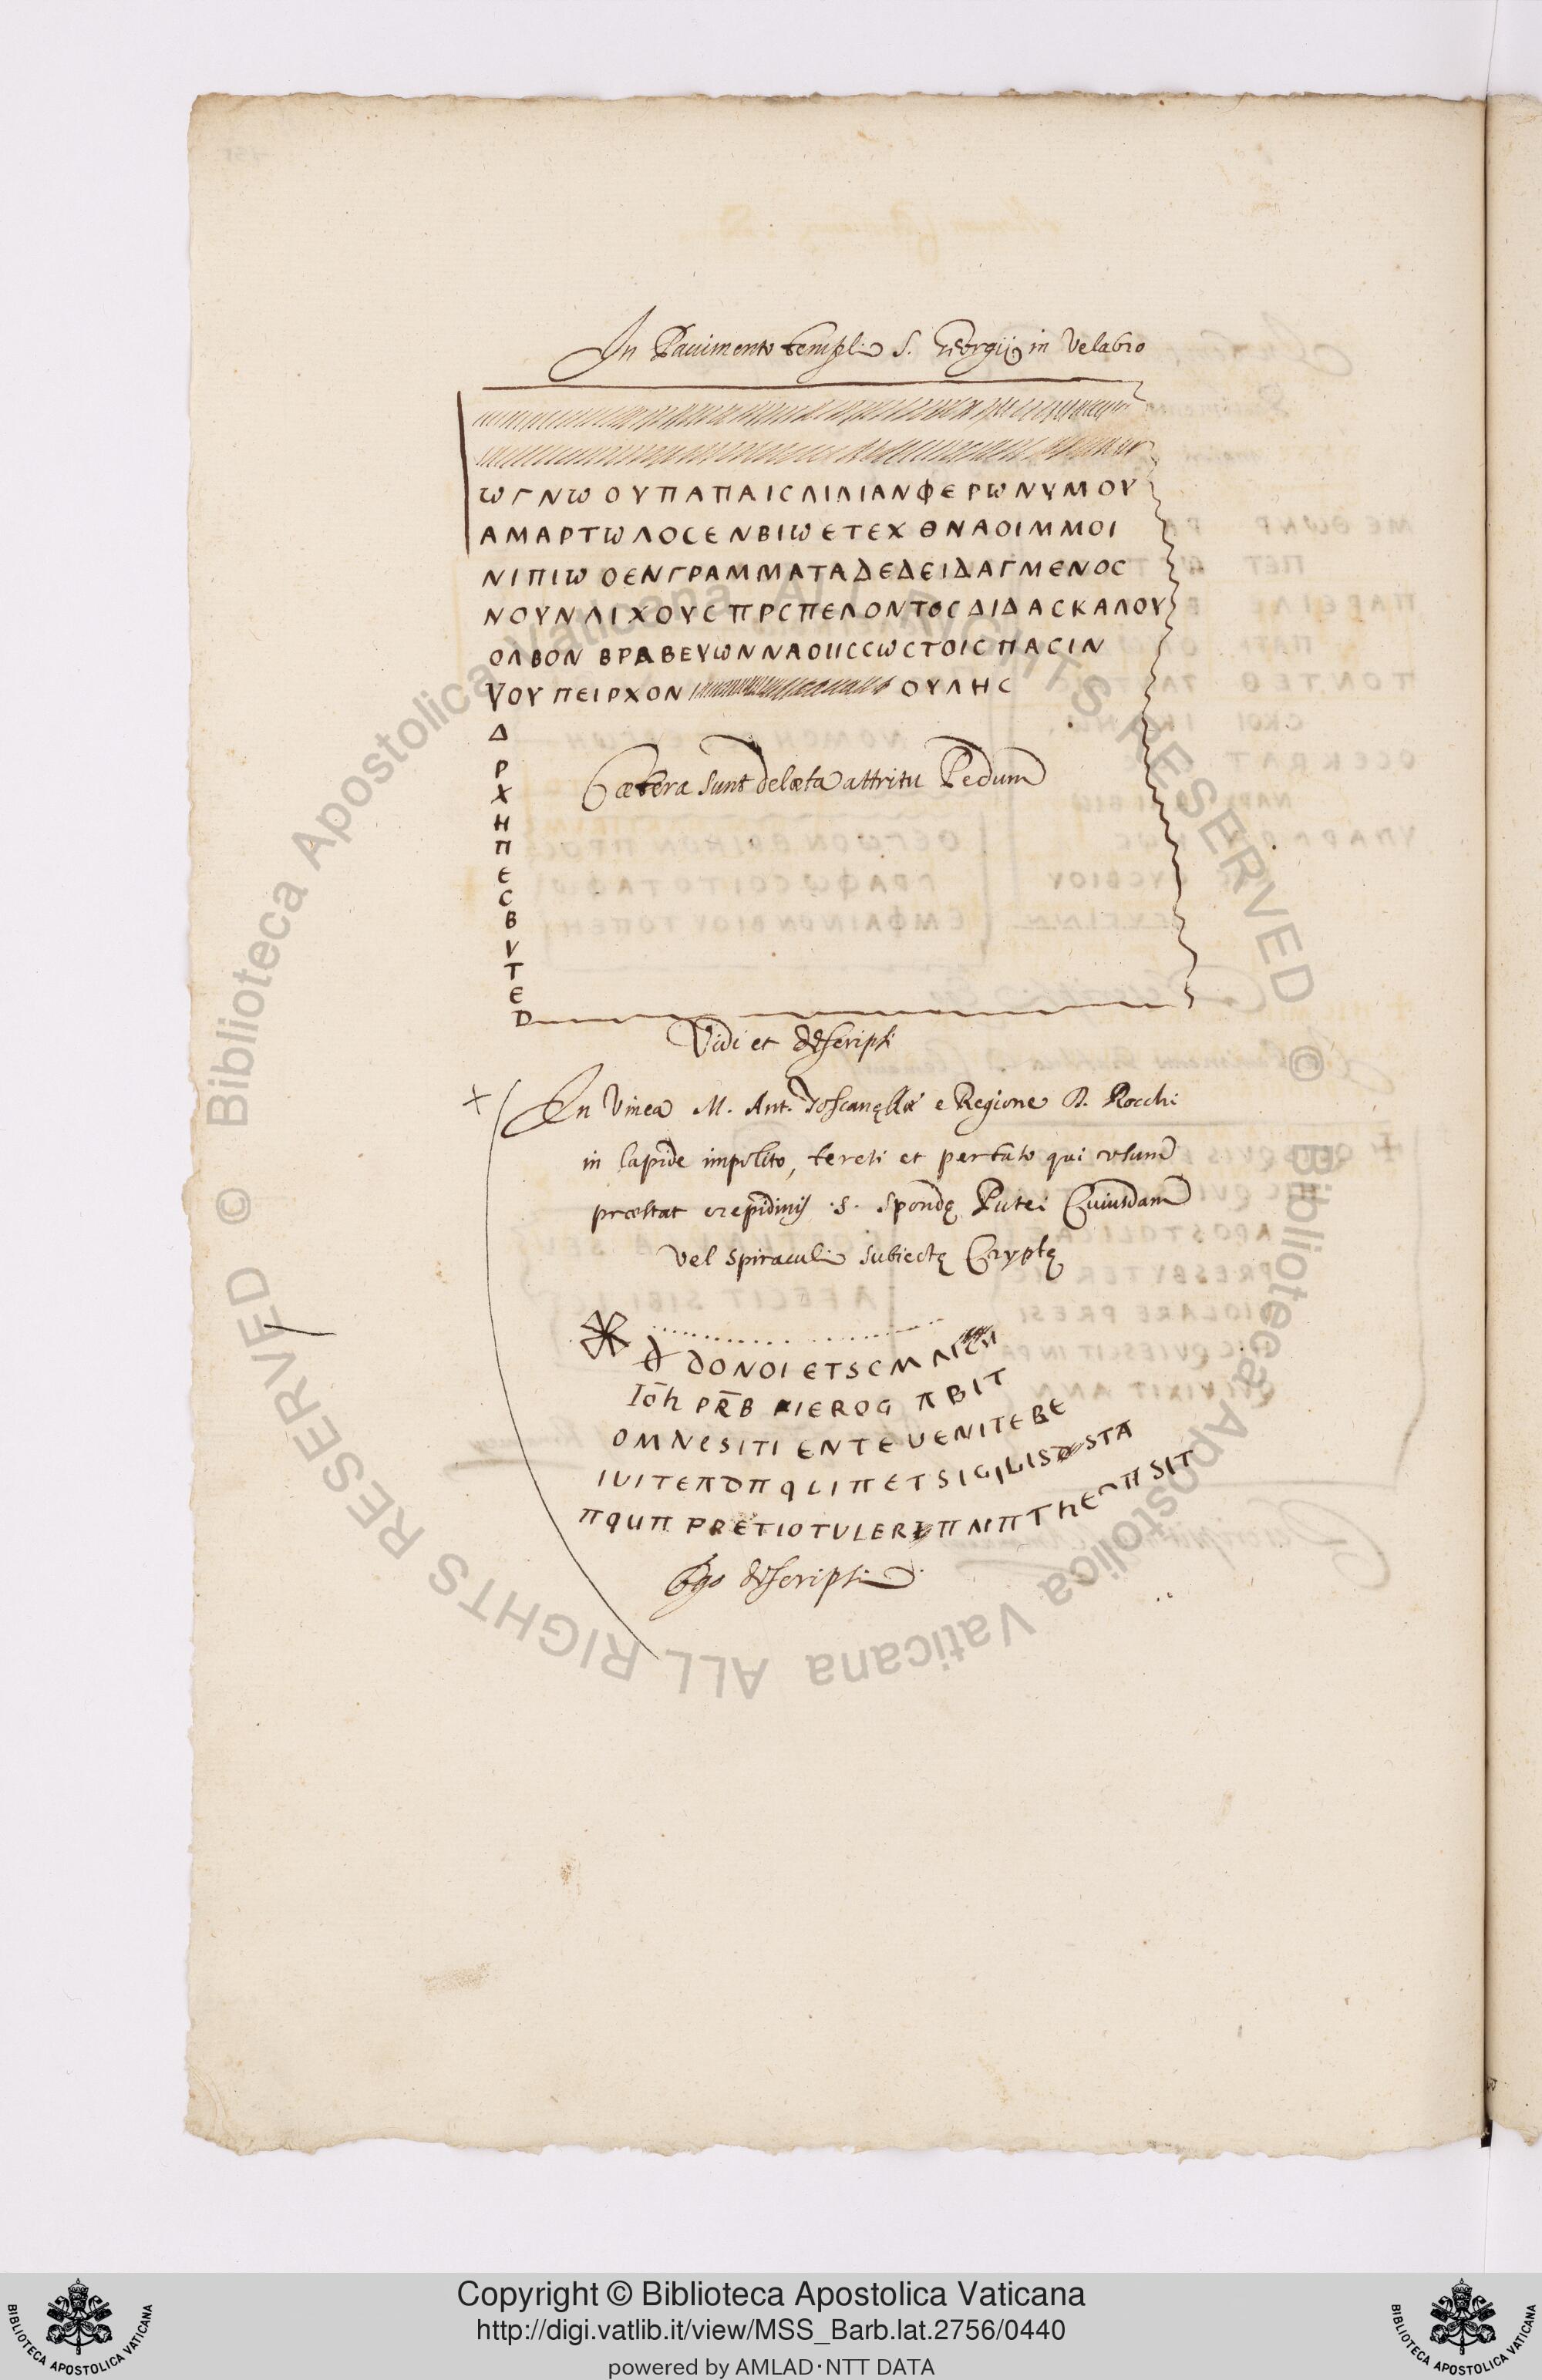 In Pauimento templi S. Georgij in Velabro
ωΓΝω ΟΥΠΑΠΑΙϹΛΙΛΙΑΝΦΕΡωΝΥΜΟΥ
ΑΜΑΡΤωΛΟϹΕΝΒΙωΕΤΕΧΘΝΑΟΙΜΜΟΙ
ΝΙΠΙωΟΕΝΓΡΑΜΜΑΤΑΔΕΔΕΙΔΑΓΜΕΝΟϹ
ΝΟΥΝΛΙΧΟΥϹΠΡϹΠΕΛΟΝΤΟϹΔΙΔΑϹΚΑΛΟΥ
ΟΛΒΟΝ ΒΡΑΒΕΥωΝΝΑΟΙΙϹϹωϹΤΟΙϹΠΑϹΙΝ
VΟΥΠΕΙΡΧΟΝ ΟΥΛΗϹ
Δ
Ρ
Χ
Η
Π
Ε
Ϲ
Β
V
Τ
Ε
D
Cætera sunt delæta attritu Pedum
Vidi et descripsi
+ In Vinea M. Ant. Toscanellæ e Regione D. Rocchi
in lapide impolito, tereti et pertuso qui usum
præstat crepidinis .s. spondę Putei Cuiusdam
vel spiraculi subiectę Cryptę
DONOI ETSCM
Iōh PR̄B HIEROG ABIT
OMNESITI ENTEUENITEBE
IUITEADAQUAETSIGILISDESTA
AQUA PRETIOTULERI
Ego descripsi
Copyright © Biblioteca Apostolica Vaticana
http://digi.vatlib.it/view/MSS_Barb.lat.2756/0440
powered by AMLAD·NTT DATA
BIBLIOTECA APOSTOLICA VATICANA
BIBLIOTECA APOSTOLICA VATICANA
© Biblioteca Apostolica Vaticana ALL RIGHTS RESERVED
© Biblioteca Apostolica Vaticana ALL RIGHTS RESERVED